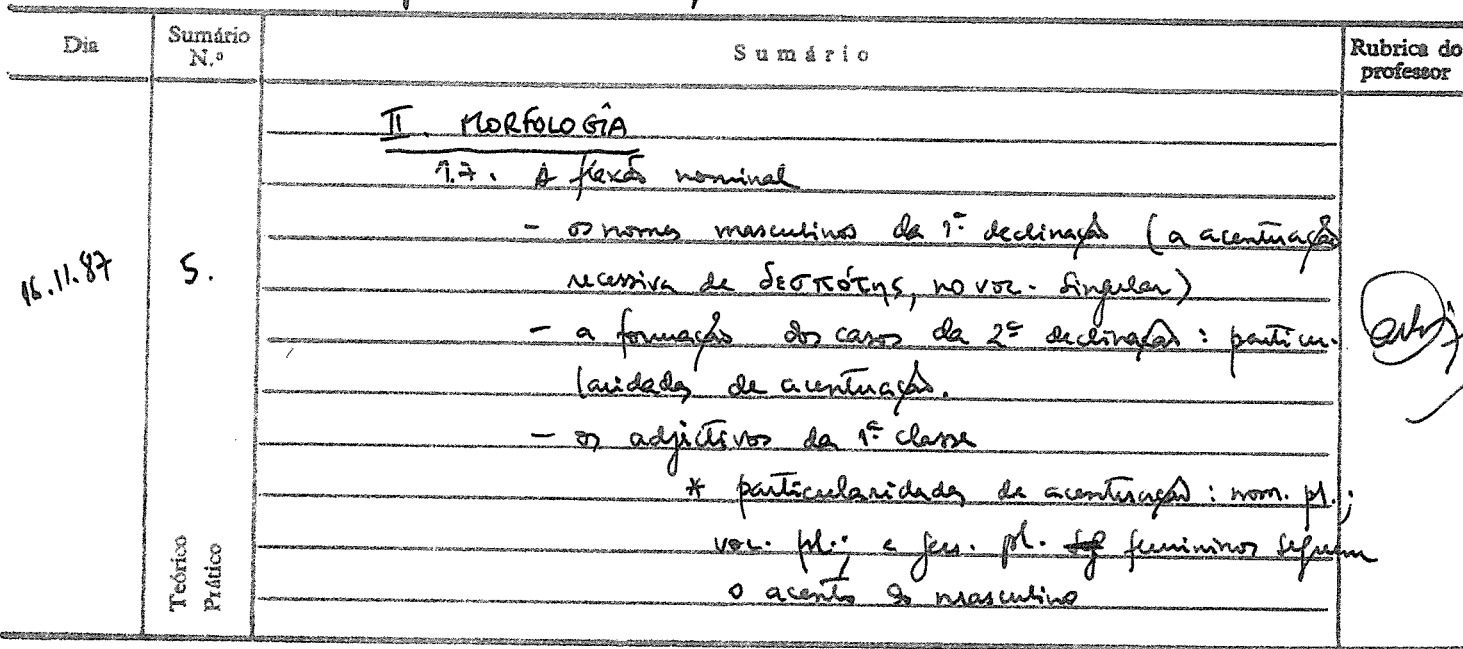 Dia Sumário N.º Sumário Rubrica do professor
II. MORFOLOGIA
1.7. A flexão nominal
- os nomes masculinos da 1ª declinação (a acentuação
recessiva de δεσπότης, no voc. singular)
16.11.87 5.
- a formação dos casos da 2ª declinação: particu-
laridades de acentuação.
- os adjectivos da 1ª classe
* particularidades de acentuação: nom. pl.;
voc. pl.; e gen. pl. femininos seguem
o acento do masculino
Teórico
Prático